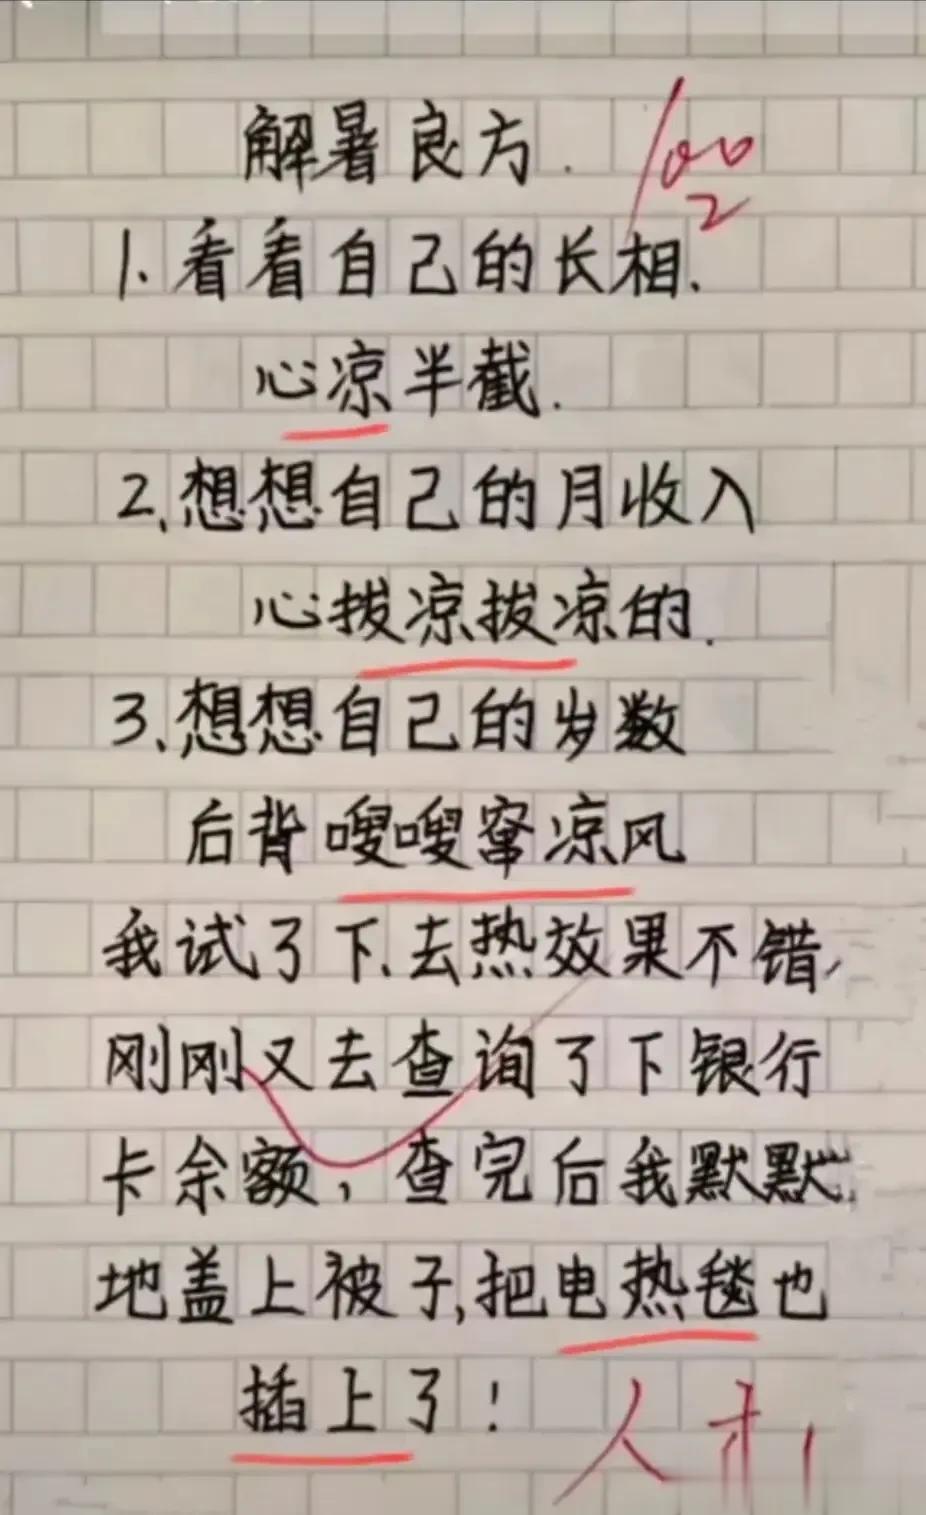 解暑良方.
100
2
1.看看自己的长相.
心凉半截.
2.想想自己的月收入
心拨凉拔凉的.
3.想想自己的岁数
后背嗖嗖窜凉风
我试了下.去热效果不错,
刚刚又去查询了下银行
卡余额,查完后我默默
地盖上被子,把电热毯也
插上了!
人才!